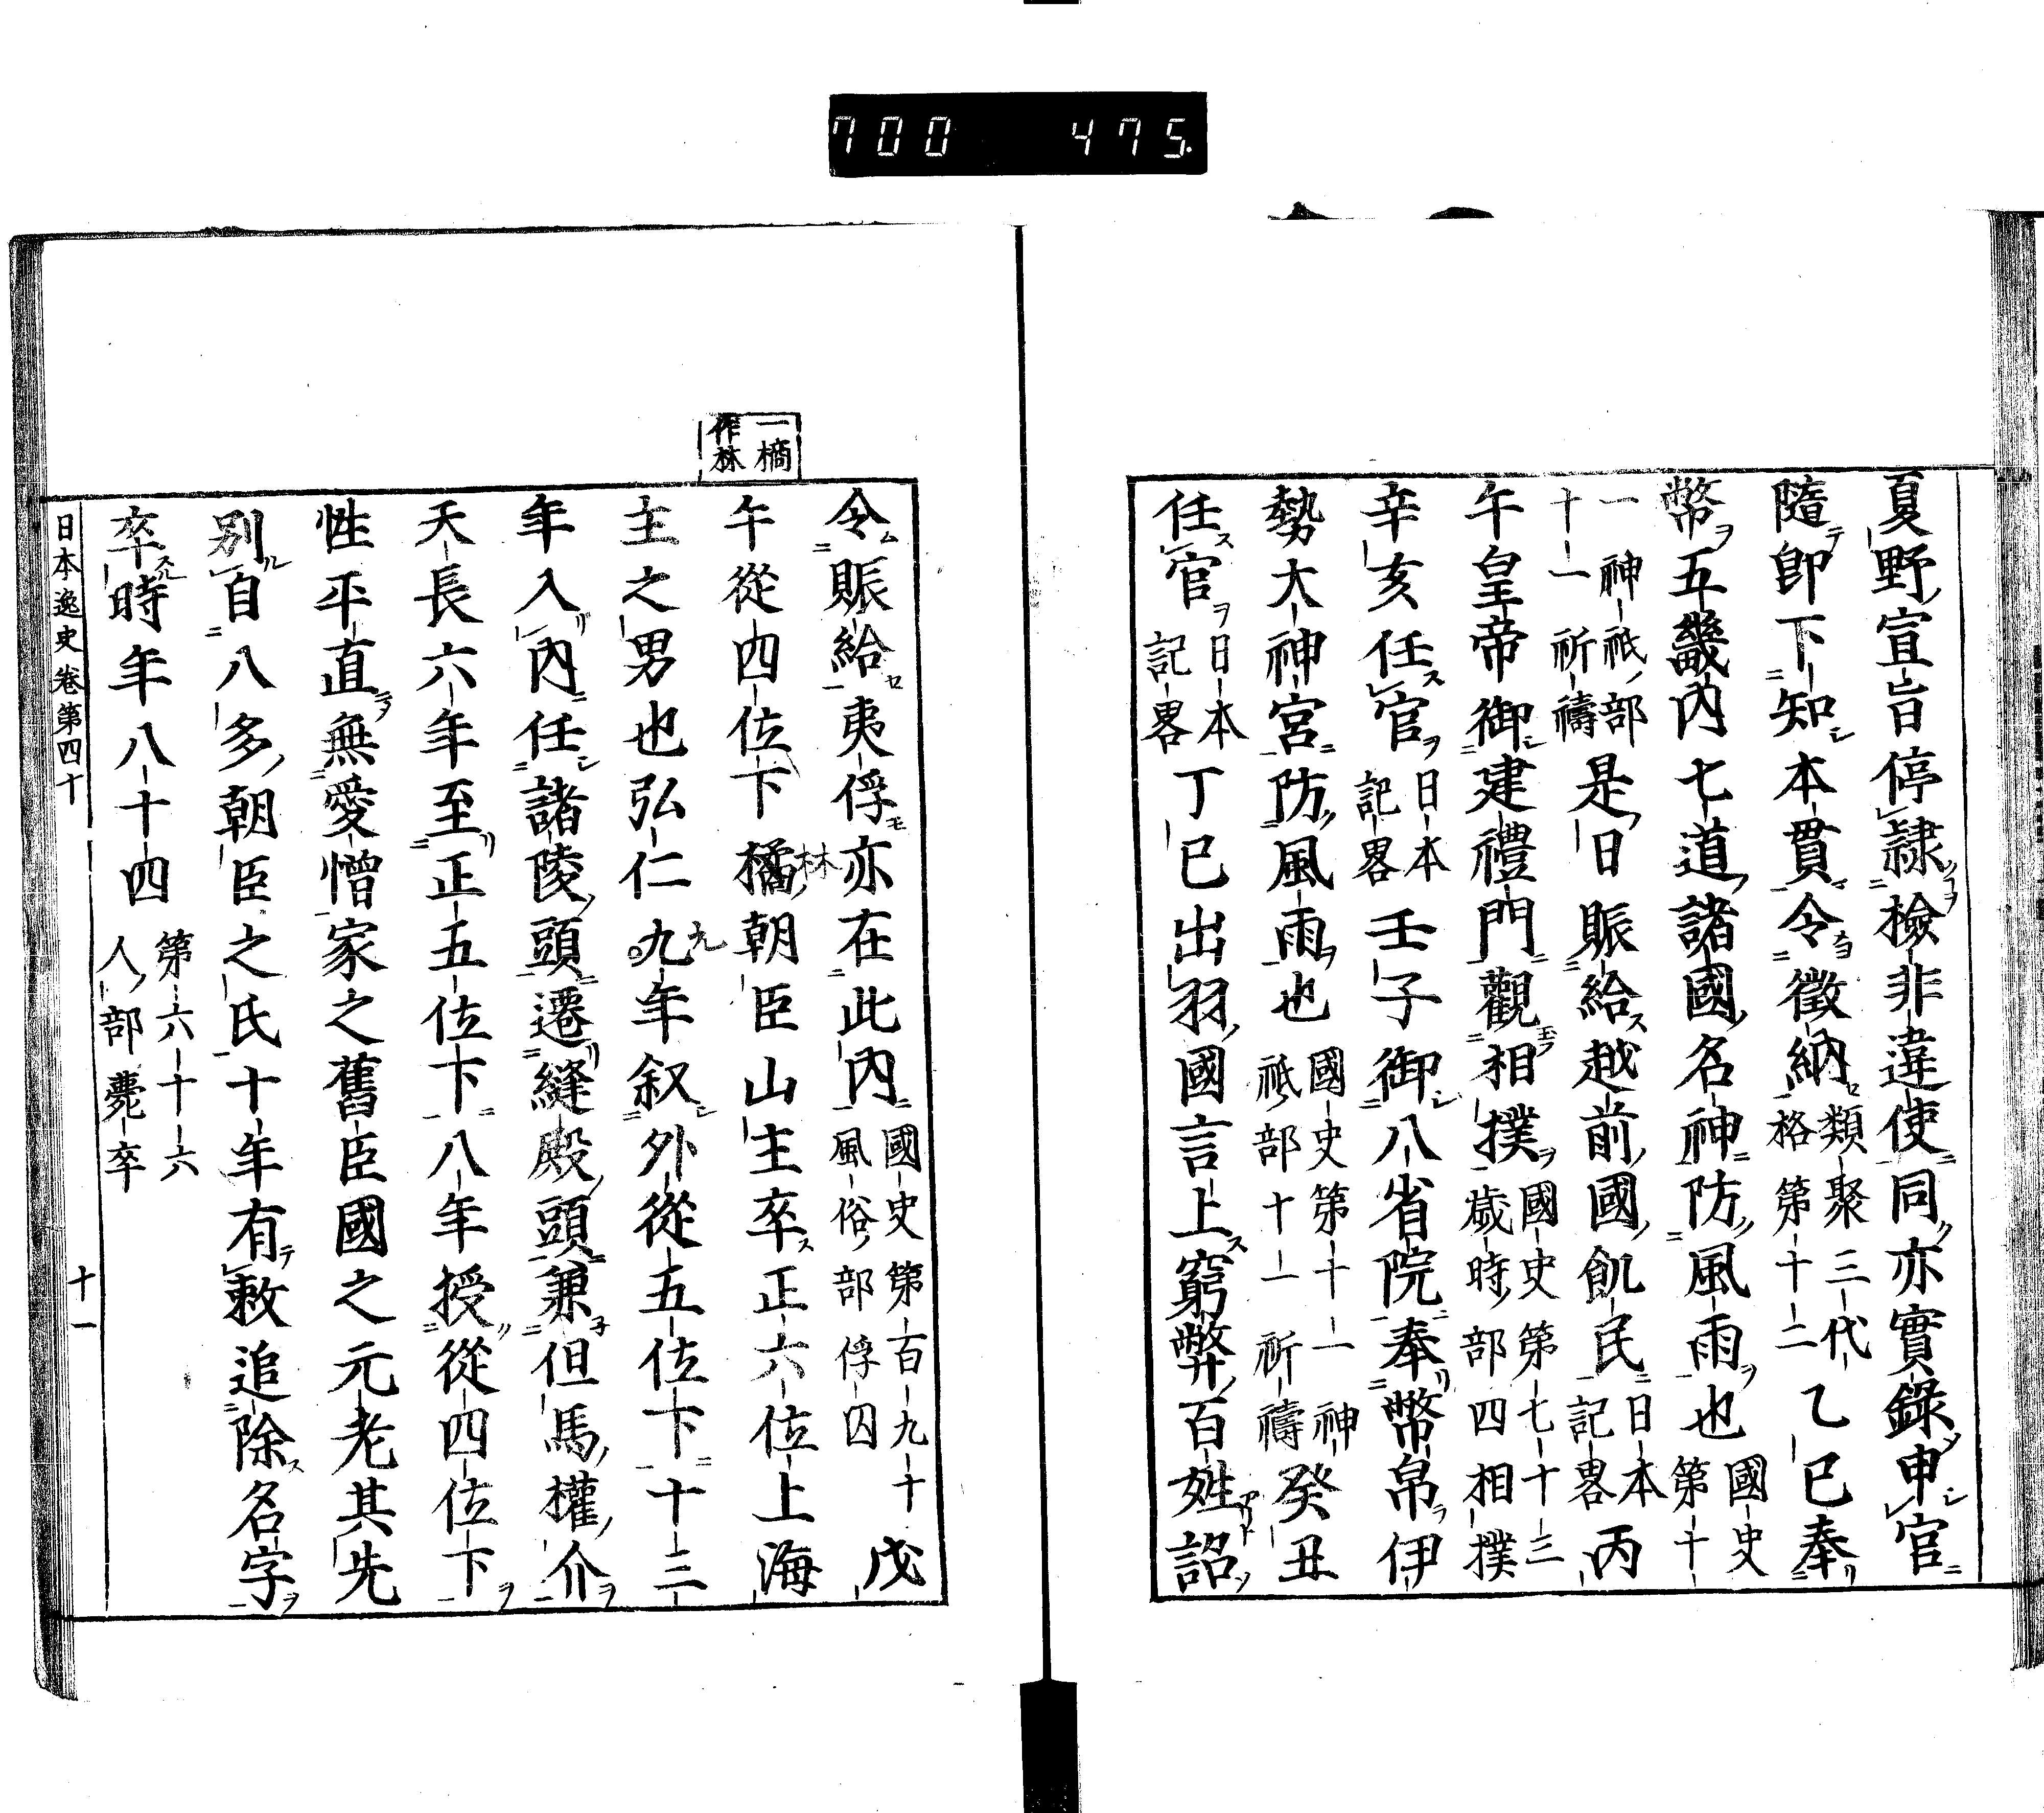 700 475.
夏野宣旨停隷檢非違使同亦實錄申官
隨卽下知本貫令徵納類聚三代格第十二乙巳奉
幣五畿內七道諸國名神防風雨也國史第十
一神祇部十一祈禱是日賑給越前國飢民日本記畧丙
午皇帝御建禮門觀相撲國史第七十三歲時部四相撲
辛亥任官日本記畧壬子御八省院奉幣帛伊
勢大神宮防風雨也國史第十一神祇部十一祈禱癸丑
任官日本記畧丁巳出羽國言上窮弊百姓詔
一橘
作林
令賑給夷俘亦在此內國史第百九十風俗部俘囚戊
午從四位下橘朝臣山主卒正六位上海
林
主之男也弘仁九年叙外從五位下十三
九
年入內任諸陵頭遷縫殿頭兼但馬權介
天長六年至正五位下八年授從四位下
性平直無愛憎家之舊臣國之元老其先
別自八多朝臣之氏十年有敕追除名字
卒時年八十四第六十六人部薨卒
日本逸史卷第四十 十一